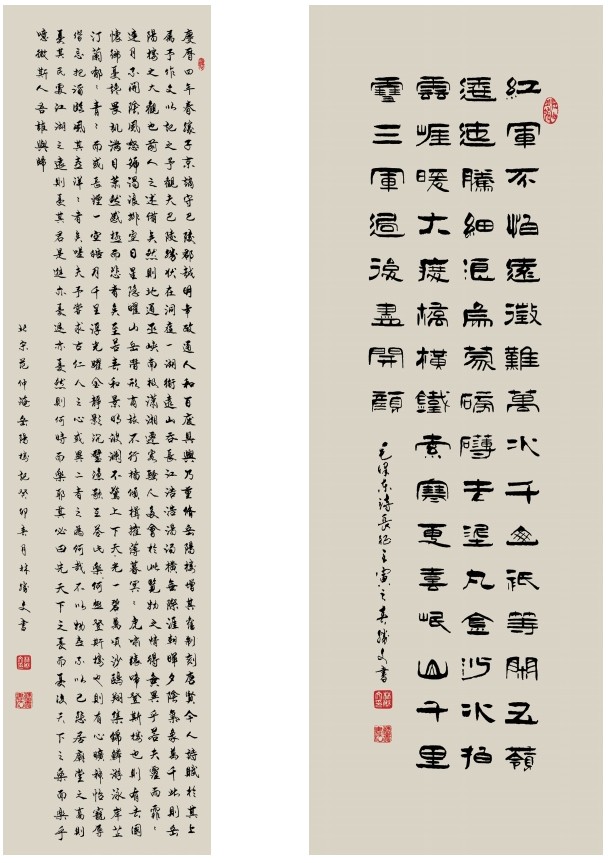 紅軍不怕遠徵難萬水千山祇等閑五嶺
逶迤騰細浪烏蒙磅礴走泥丸金沙水拍
雲崖暖大渡橋橫鐵索寒更喜岷山千里
雪三軍過後盡開顏
毛澤東詩長征壬寅之春勝文書
慶曆四年春滕子京謫守巴陵郡越明年政通人和百廢具興乃重修岳陽樓增其舊制刻唐賢今人詩賦於其上
屬予作文以記之予觀夫巴陵勝狀在洞庭一湖銜遠山吞長江浩浩湯湯橫無際涯朝暉夕陰氣象萬千此則岳
陽樓之大觀也前人之述備矣然則北通巫峽南極瀟湘遷客騷人多會於此覽物之情得無異乎若夫霪雨霏〻
連月不開陰風怒號濁浪排空日星隱曜山岳潛形商旅不行檣傾楫摧薄暮冥〻虎嘯猿啼登斯樓也則有去國
懷鄉憂讒畏譏滿目蕭然感極而悲者矣至若春和景明波瀾不驚上下天光一碧萬頃沙鷗翔集錦鱗游泳岸芷
汀蘭郁〻青〻而或長煙一空皓月千里浮光躍金靜影沉璧漁歌互答此樂何極登斯樓也則有心曠神怡寵辱
偕忘把酒臨風其喜洋〻者矣嗟夫予嘗求古仁人之心或異二者之為何哉不以物喜不以己悲居廟堂之高則
憂其民處江湖之遠則憂其君是進亦憂退亦憂然則何時而樂耶其必曰先天下之憂而憂後天下之樂而樂乎
噫微斯人吾誰與歸
北宋范仲淹岳陽樓記癸卯春月林勝文書